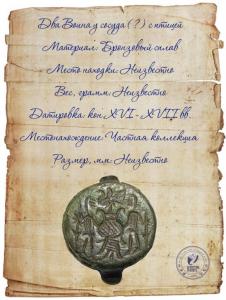 Два Воина у сосуда (?) с птицей
Материал: Бронзовый сплав
Место находки: Неизвестно
Вес, грамм: Неизвестно
Датировка: кон. XVI - XVII вв.
Местонахождение: Частная коллекция
Размер, мм: Неизвестно